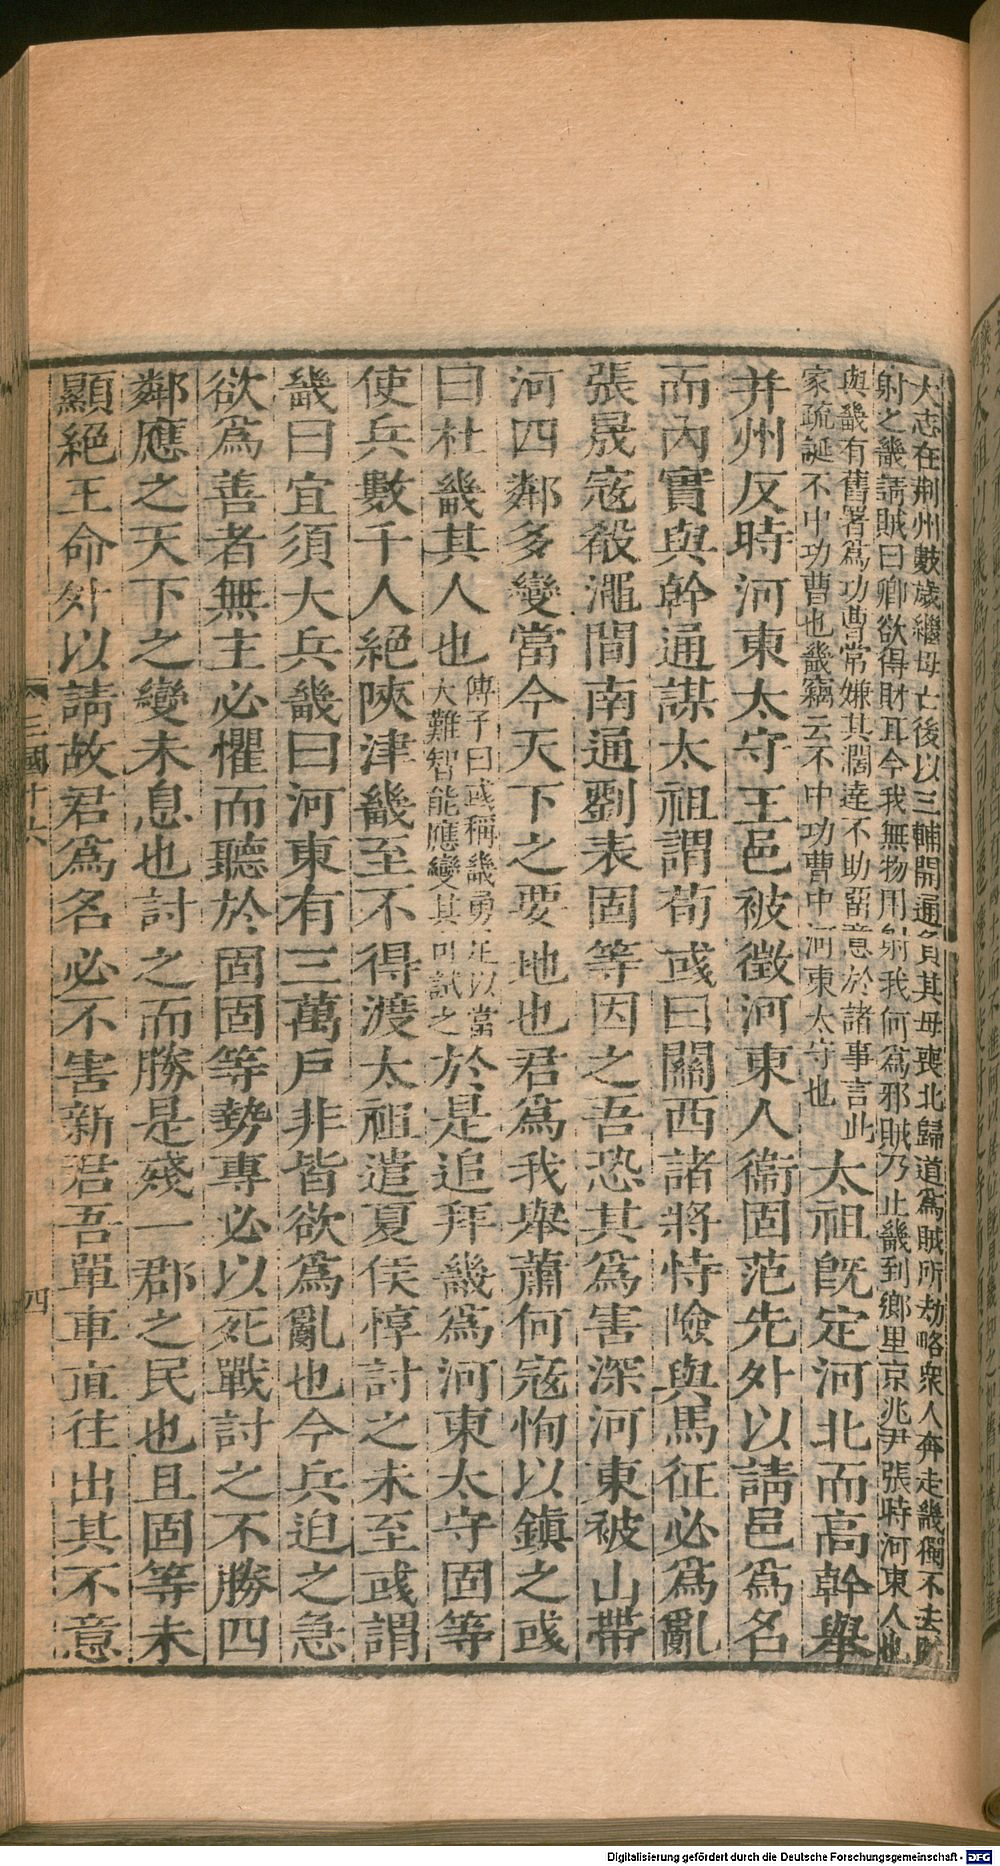 大志在荆州數歲繼母亡後以三輔開通負其母喪北歸道爲賊所劫略衆人奔走畿獨不去賊
射之畿請賊曰卿欲得財耳今我無物用射我何爲邪賊乃止畿到鄉里京兆尹張時河東人也
與畿有舊署爲功曹常嫌其濶達不助留意於諸事言此
家疏誕不中功曹也畿竊云不中功曹中河東太守也
太祖旣定河北而高幹舉
并州反時河東太守王邑被徵河東人衞固范先外以請邑爲名
而內實與幹通謀太祖謂荀彧曰關西諸將恃險與馬征必爲亂
張晟寇殽澠間南通劉表固等因之吾恐其爲害深河東被山帶
河四鄰多變當今天下之要地也君爲我舉蕭何寇恂以鎮之彧
曰杜畿其人也
傅子曰彧稱畿勇足以當
大難智能應變其可試之
於是追拜畿爲河東太守固等
使兵數千人絕陝津畿至不得渡太祖遣夏侯惇討之未至或謂
畿曰宜須大兵畿曰河東有三萬戶非皆欲爲亂也今兵迫之急
欲爲善者無主必懼而聽於固固等勢專必以死戰討之不勝四
鄰應之天下之變未息也討之而勝是殘一郡之民也且固等未
顯絕王命外以請故君爲名必不害新君吾單車直往出其不意
三國十六
四
Digitalisierung gefördert durch die Deutsche Forschungsgemeinschaft - DFG